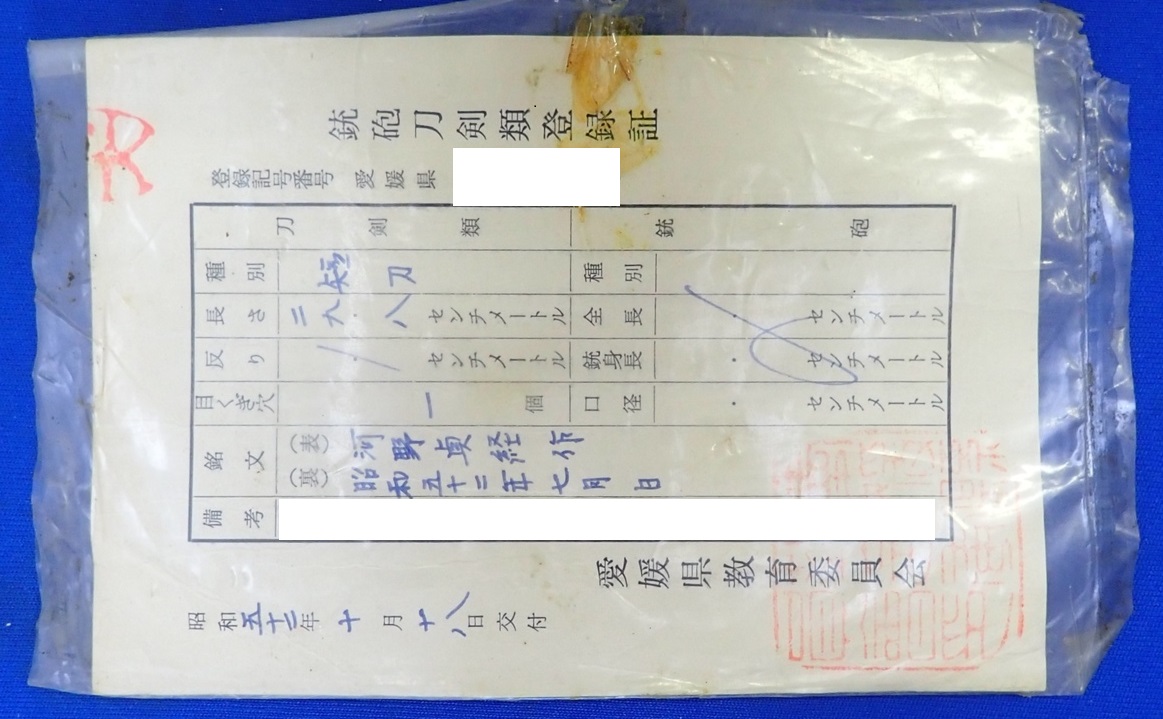 銃砲刀剣類登録証
登録記号番号 愛媛県
刀剣類 銃砲
種別 短刀 種別
長さ 二九八 センチメートル 全長 センチメートル
反り センチメートル 銃身長 センチメートル
目くぎ穴 一個 口径 センチメートル
銘文 (表) 河野貞経作
(裏) 昭和五十二年七月 日
備考
愛媛県教育委員会
昭和五十二年十月十八日交付